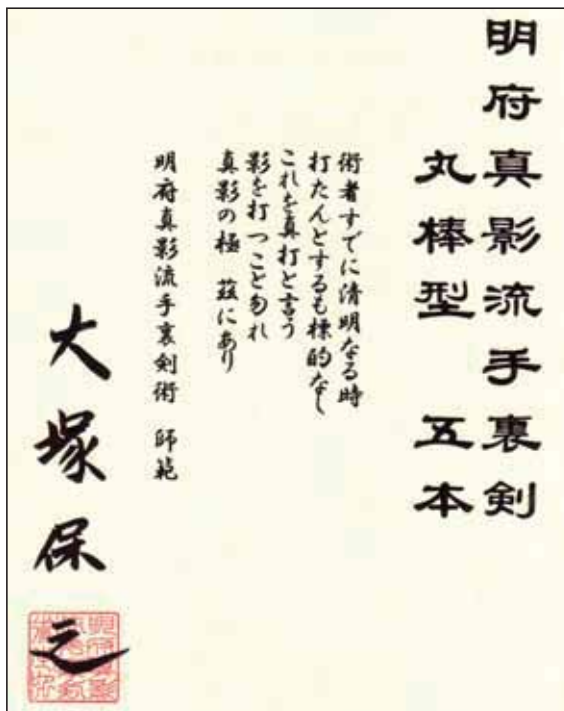 明府真影流手裏剣
丸棒型 五本
術者すでに清明なる時
打たんとするも標的なし
これを真打と言う
影を打つこと勿れ
真影の極 茲にあり
明府真影流手裏剣術 師範
大塚保之